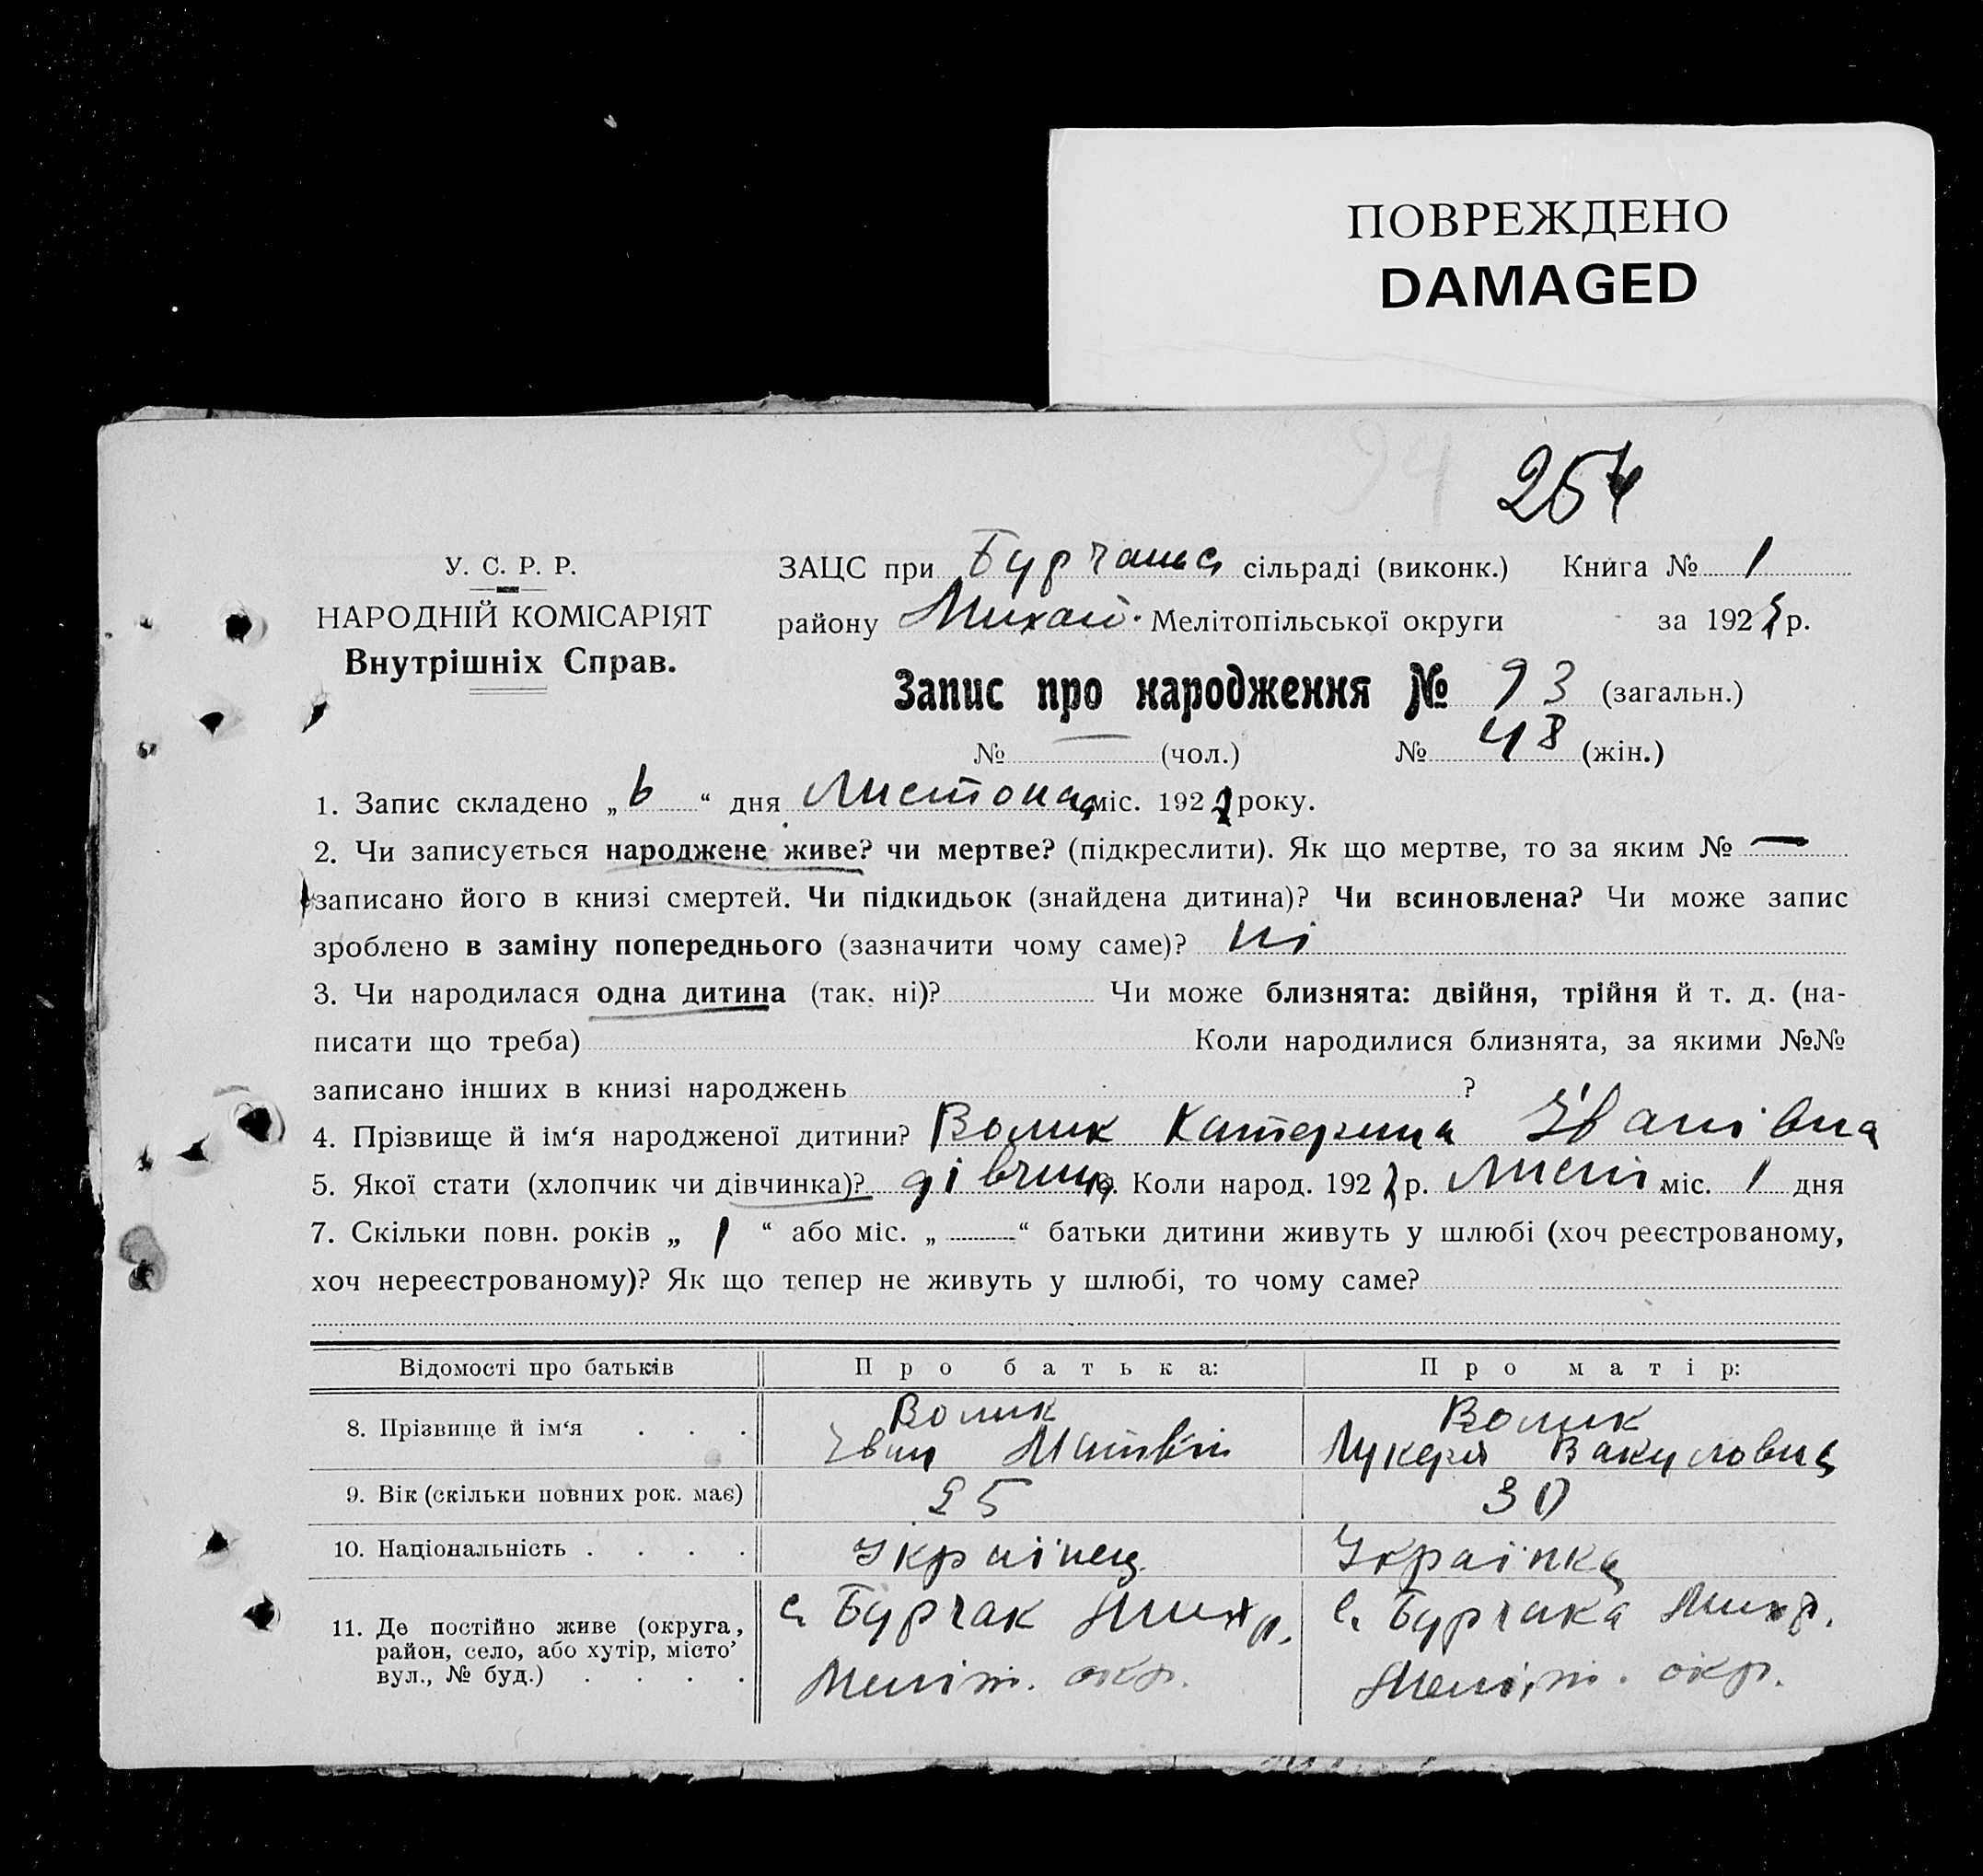 ПОВРЕЖДЕНО
DAMAGED
94
254
У. С. Р. Р.
НАРОДНІЙ КОМІСАРІЯТ
Внутрішніх Справ.
ЗАЦС при сільраді (виконк.) Книга № 1
району Михай. Мелітопільської округи за 192 р.
Запис про народження № 93 (загальн.)
№ — (чол.) № 48 (жін.)
1. Запис складено „ 6 “ дня Листопад міс. 192 року.
2. Чи записується народжене живе? чи мертве? (підкреслити). Як що мертве, то за яким № —
записано його в книзі смертей. Чи підкидьок (знайдена дитина)? Чи всиновлена? Чи може запис
зроблено в заміну попереднього (зазначити чому саме)? ні
3. Чи народилася одна дитина (так, ні)? Чи може близнята: двійня, трійня й т. д. (на-
писати що треба) Коли народилися близнята, за якими №№
записано інших в книзі народжень ?
4. Прізвище й ім‘я народженої дитини? Волик Катерина Іванівна
5. Якої стати (хлопчик чи дівчинка)? дівчина 6. Коли народ. 192 р. Лист міс. 1 дня
7. Скільки повн. років „ 1 “ або міс. „ “ батьки дитини живуть у шлюбі (хоч реєстрованому,
хоч нереєстрованому)? Як що тепер не живуть у шлюбі, то чому саме?
Відомості про батьків Про батька: Про матір:
8. Прізвище й ім‘я . . . Волик Волик
Іван Матвій Лукеря Вакуловна
9. Вік (скільки повних рок. має) 25 30
10. Національність . . . . Українец Українка
11. Де постійно живе (округа, район, село, або хутір, місто’ вул., № буд.) . . . .
с. Бурчак Мих р. Меліт. окр.
с. Бурчака Мих р. Меліт. окр.